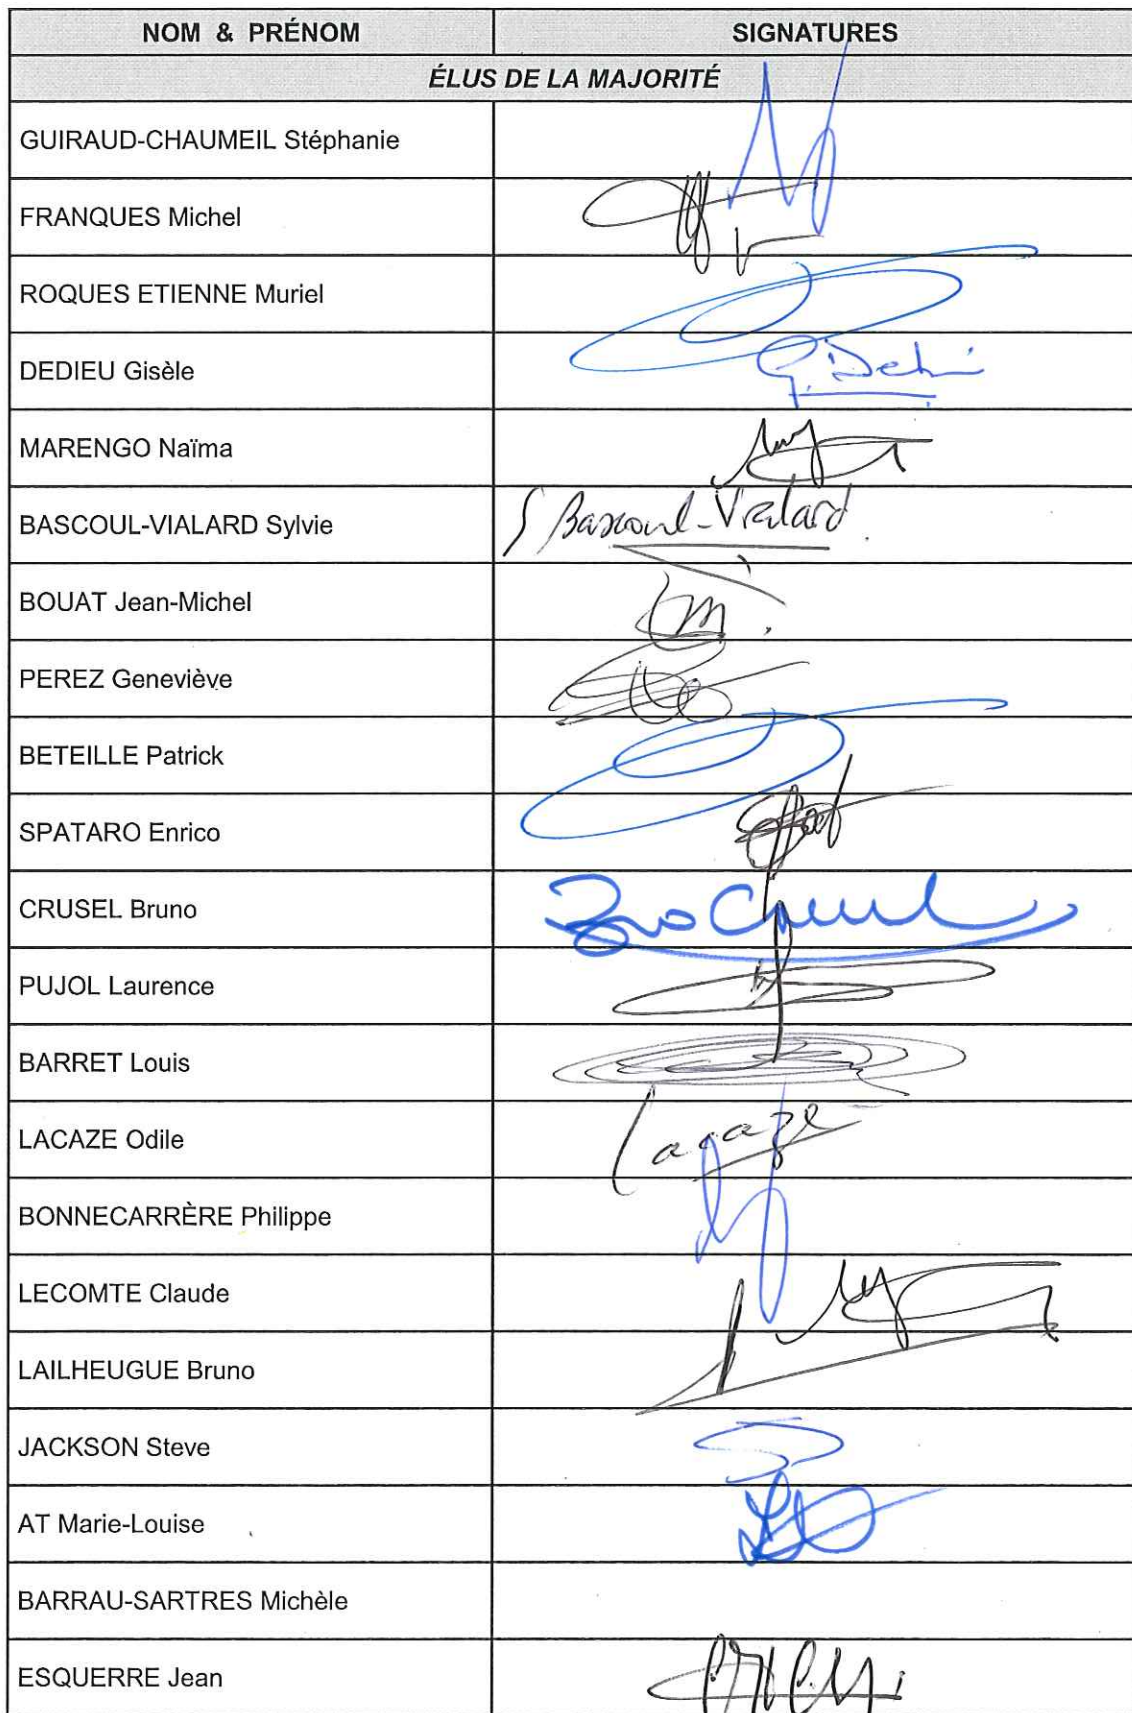 NOM & PRÉNOM SIGNATURES
ÉLUS DE LA MAJORITÉ
GUIRAUD-CHAUMEIL Stéphanie
FRANQUES Michel
ROQUES ETIENNE Muriel
DEDIEU Gisèle
MARENGO Naïma
BASCOUL-VIALARD Sylvie S Bascoul-Vialard
BOUAT Jean-Michel
PEREZ Geneviève
BETEILLE Patrick
SPATARO Enrico
CRUSEL Bruno
PUJOL Laurence
BARRET Louis
LACAZE Odile Lacaze
BONNECARRÈRE Philippe
LECOMTE Claude
LAILHEUGUE Bruno
JACKSON Steve
AT Marie-Louise
BARRAU-SARTRES Michèle
ESQUERRE Jean